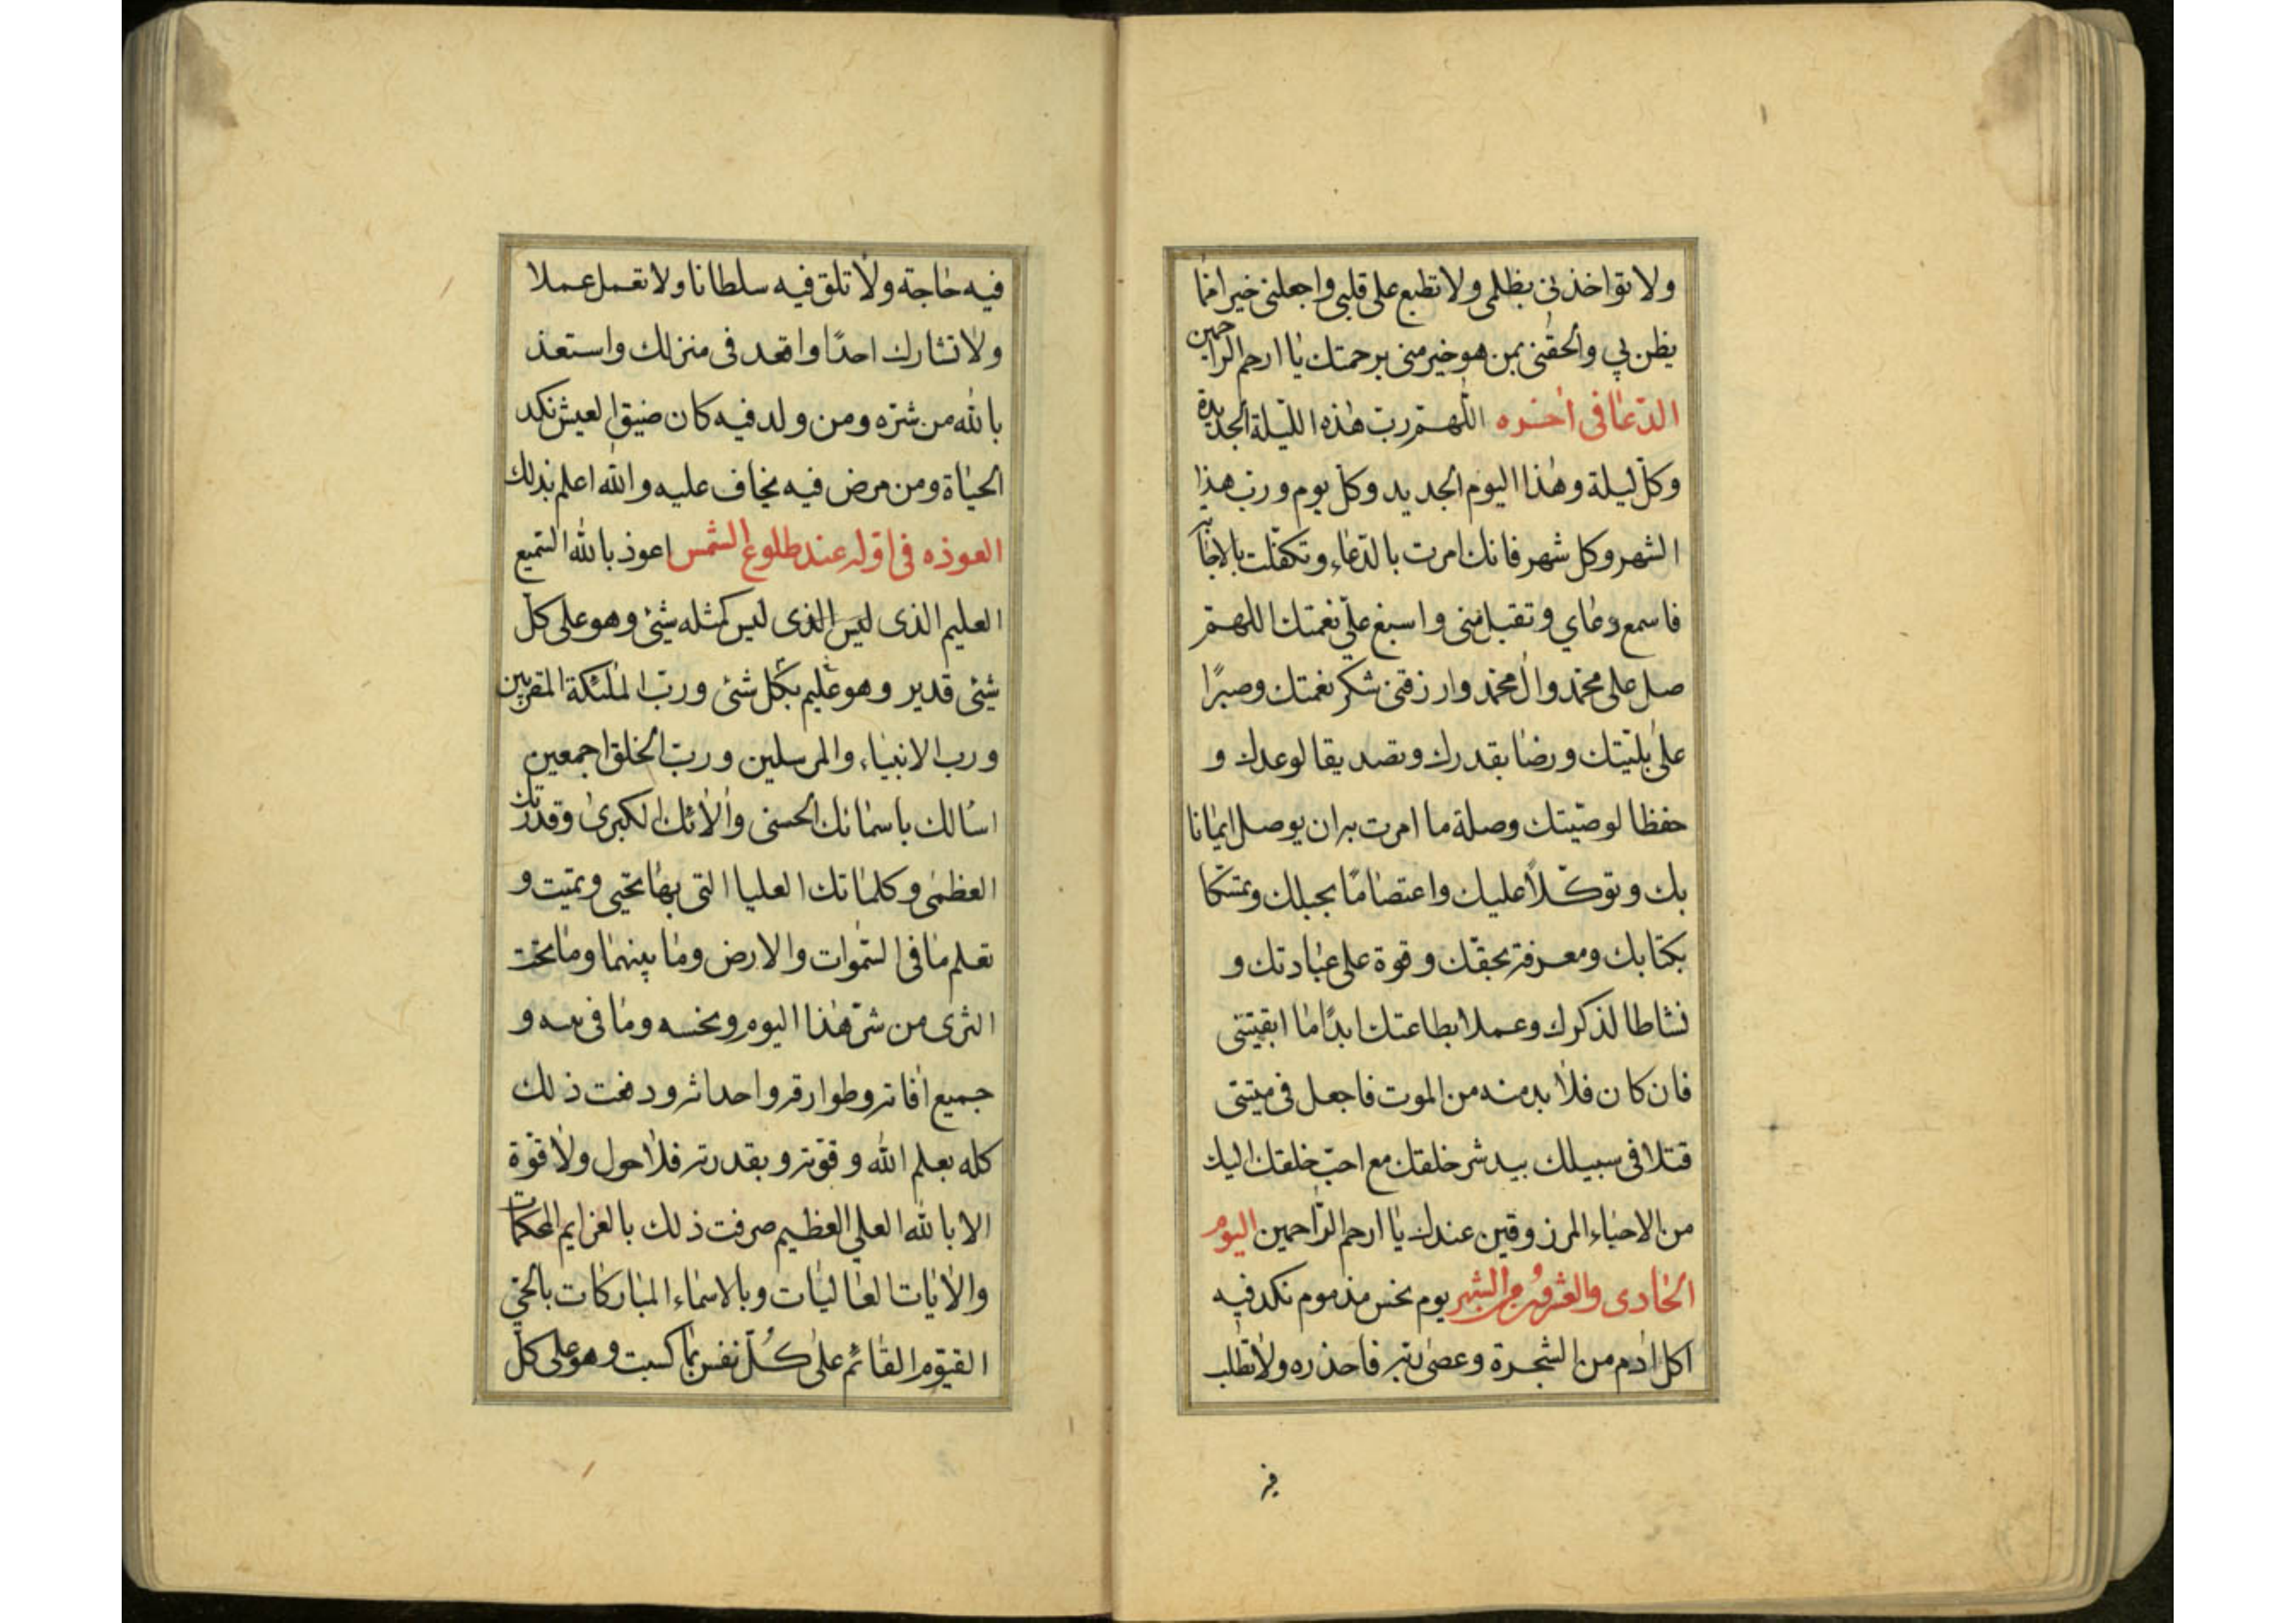 ولا تواخذنى بظلمى ولا تطبع على قلبى واجعلنى خيرا مما
يظن بي والحقنى بمن هو خير منى برحمتك يا ارحم الراحمين
الدعا فى اخره اللهم رب هذه الليلة الجديدة
وكل ليلة وهذا اليوم الجديد وكل يوم ورب هذا
الشهر وكل شهر فانك امرت بالدعاء وتكفلت بالاجابة
فاسمع دعاي وتقبل منى واسبغ على نعمتك اللهم
صل على محمد وال محمد وارزقنى شكر نعمتك وصبرًا
على بليتك ورضا بقدرك وتصديقا لوعدك و
حفظا لوصيتك وصلة ما امرت به ان يوصل ايمانا
بك وتوكلاً عليك واعتصامًا بحبلك وتمسكا
بكتابك ومعرفة بحقك وقوة على عبادتك و
نشاطا لذكرك وعملا بطاعتك ابدًا ما ابقيتنى
فان كان فلا بد منه من الموت فاجعل فى ميتتى
قتلا فى سبيلك بيد شر خلقك مع احب خلقك اليك
من الاحياء المرزوقين عندك يا ارحم الراحمين اليوم
الحادى والعشرون من الشهر يوم نحس مذموم نكد فيه
اكل ادم من الشجرة وعصى ربه فاحذره ولا تطلب
فيه
فيه حاجة ولا تلق فيه سلطانا ولا تعمل عملا
ولا تشارك احدًا واقعد فى منزلك واستعذ
بالله من شره ومن ولد فيه كان ضيق العيش نكد
الحياة ومن مرض فيه يخاف عليه والله اعلم بذلك
العوذه فى اوله عند طلوع الشمس اعوذ بالله السميع
العليم الذى ليس الذى ليس كمثله شئ وهو على كل
شئ قدير وهو عليم بكل شئ ورب الملئكة المقربين
ورب الانبياء والمرسلين ورب الخلق اجمعين
اسالك باسمائك الحسنى والائك الكبرى وقدرتك
العظمى وكلماتك العليا التى بها تحيى وتميت و
تعلم ما فى السموات والارض وما بينهما وما تحت
الثرى من شر هذا اليوم ونحسه وما فى و
جميع افاته وطوارقه واحداثه ودفعت ذلك
كله بعلم الله وقوته وبقدرته فلا حول ولا قوة
الا بالله العلي العظيم صرفت ذلك بالعزايم المحكمات
والايات العاليات وبالاسماء المباركات بالحي
القيوم القائم على كُل نفس بما كسبت وهو على كل